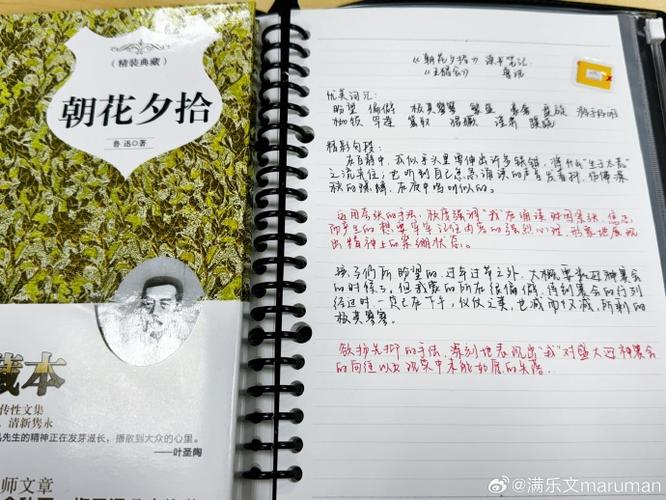 (精装典藏)
朝花夕拾
鲁 迅◎著
藏本
传性文集
、清新隽永
先生的精神正在发芽滋长，播散到大众的心里。
——叶圣陶
师文章
《朝花夕拾》读书笔记
《五猖会》 鲁迅
优美词汇：
盼望 偏僻 极其寥寥
精彩句段：
在百静中，我似乎头里要伸出许多铁钳，将什么“生于太荒”
之流夹住；也听到自己急急诵读的声音发着抖，仿佛深
秋的蟋蟀，在夜中鸣叫似的。
运用夸张的手法，极度强调“我”在诵读时因紧张、焦急
而产生的想要牢牢记住内容的强烈心理，形象地展现
出精神上的
孩子们所盼望的，过年过节之外，大概要数迎神赛会
的时候了。但我家的所在很偏僻，待到赛会的行列
经过时，一定已在下午，仪仗之类，也减而又减，所剩的
极其寥寥。
欲扬先抑的手法，深刻地表现出“我”对盛大迎神赛会
的向往以及现实中未能如愿的失落。
@满乐文maruman